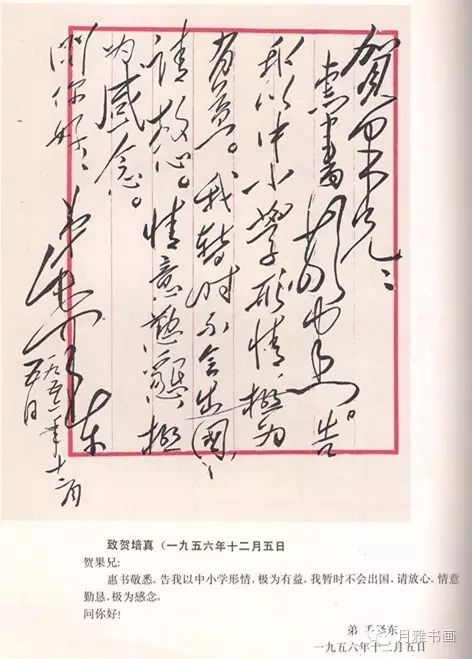 賀果兄：
惠書敬悉。告
我以中小學形情，极为
有益。我暂时不会出國，
请放心。情意懃懇，极
为感念。
问你好！
弟 毛泽东
一九五六年十二月
五日
致贺培真（一九五六年十二月五日
贺果兄：
惠书敬悉。告我以中小学形情，极为有益。我暂时不会出国，请放心。情意
勤恳，极为感念。
问你好！
弟 毛泽东
一九五六年十二月五日
月雅书画